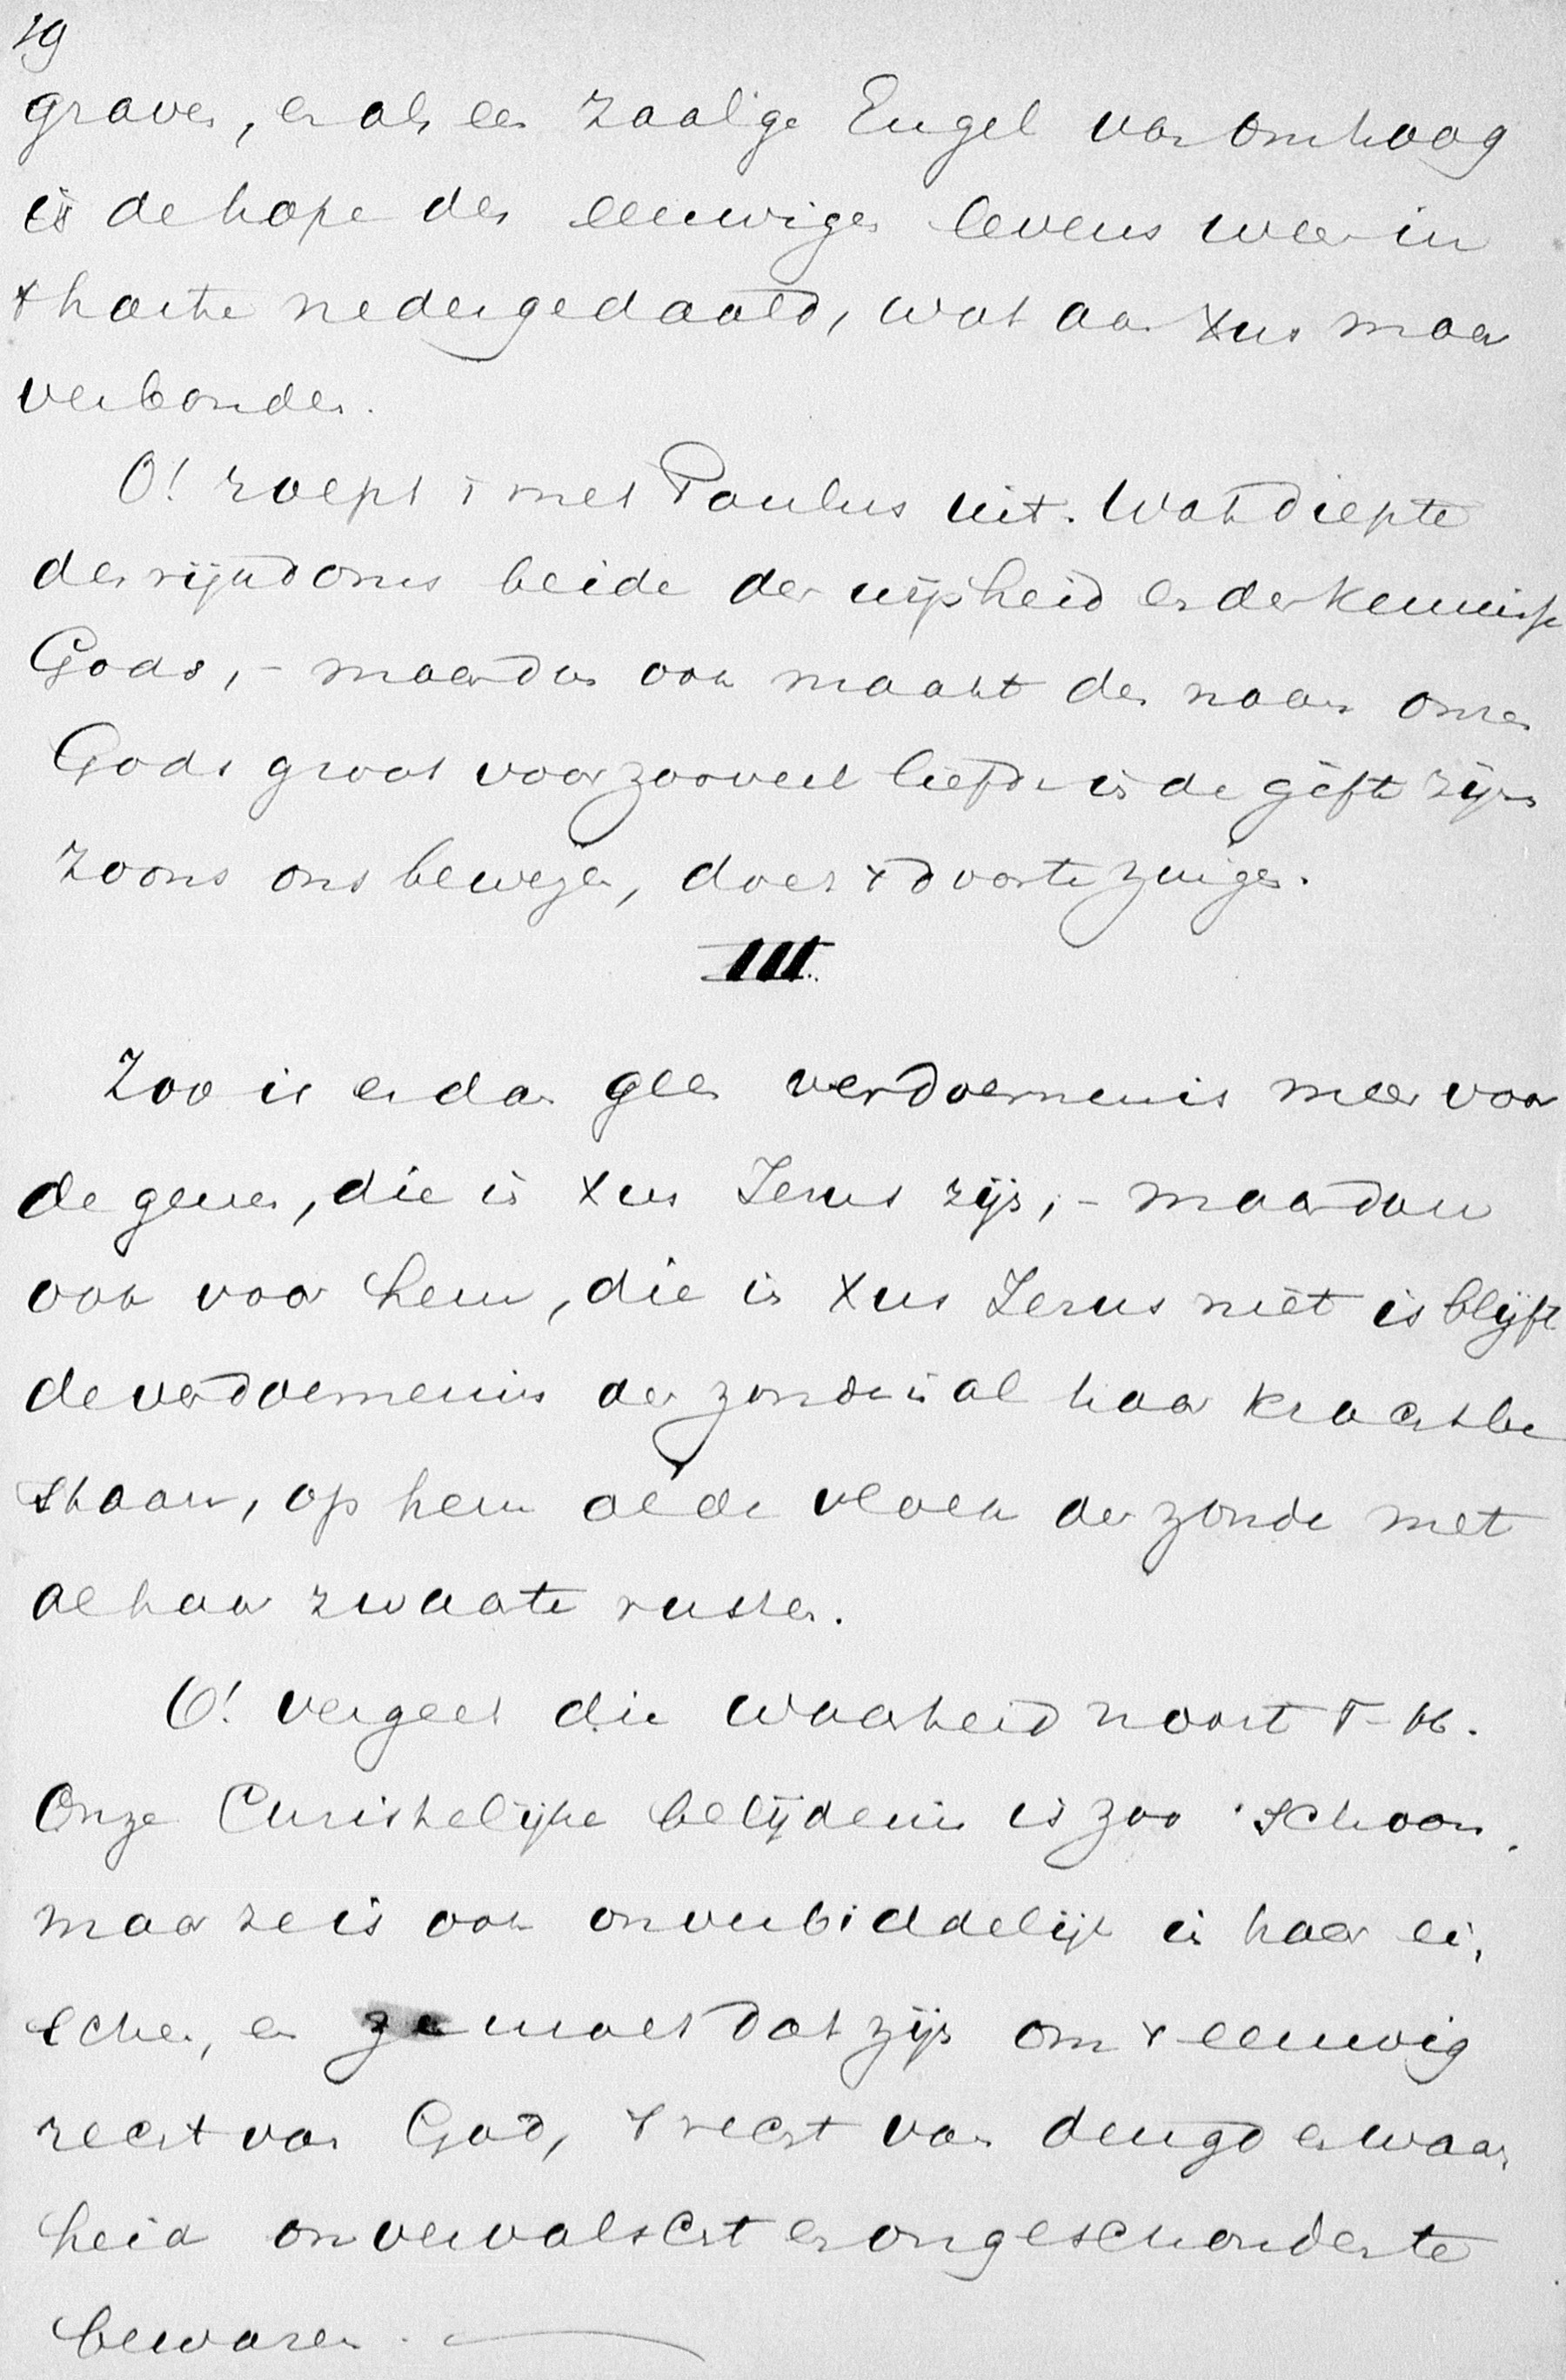 19
graven, en als een zaalige Engel van omhoog
is de hope des eeuwigen levens weer in
't harte nedergedaald, wat aan Xus maar
verbonden.
O! roept 't met Paulus uit. Wat diepte
des rijkdoms beide der wijsheid en der kennisse
Gods, - maar dan ook maakt den naam onzes
Gods groot voor zooveel liefde in de gifte zijns
Zoons ons bewezen, door 't d voort te zingen.
III.
Zoo is er dan geen verdoemenis meer voor
de genen, die in Xus Jezus zijn, - maar dan
ook voor hem, die in Xus Jezus niet is blijft
de verdoemenis der zonde in al haar kracht be
staan, op hem al de vloek der zonde met
al haar zwaarte rusten.
O! vergeet die waarheid nooit
Onze Christelijke belijdenis is zoo schoon,
maar ze is ook onverbiddelijk in haar ei,
schen, en ze moet dat zijn om 't eeuwig
recht van God, 't recht van deugd en waar
heid onvervalscht en ongeschonden te
bewaren.